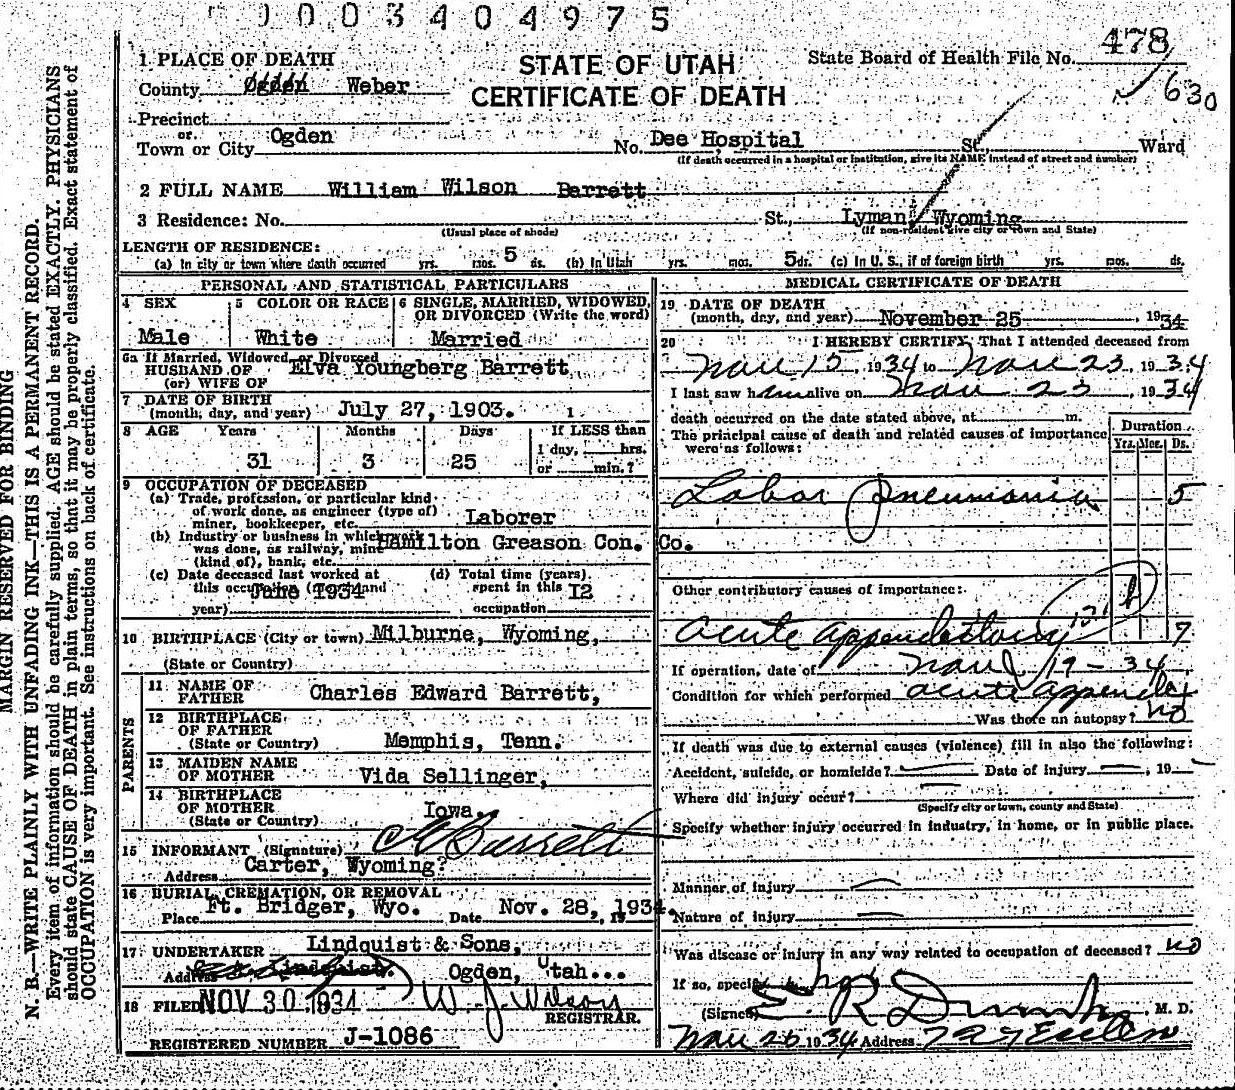 1003404975
478
630
STATE OF UTAH
CERTIFICATE OF DEATH
State Board of Health File No.
1 PLACE OF DEATH
County Ogden Weber
Precinct
or.
Town or City Ogden No. Dee Hospital St., Ward
(If death occurred in a hospital or institution, give its NAME instead of street and number)
2 FULL NAME William Wilson Barrett
3 Residence: No. St., Lyman Wyoming
(Usual place of abode) (If non-resident give city or town and State)
LENGTH OF RESIDENCE:
(a) In city or town where death occurred yrs. mos. 5 ds. (b) In Utah yrs. mos. 5 ds. (c) In U. S., if of foreign birth yrs. mos. ds.
PERSONAL AND STATISTICAL PARTICULARS
4 SEX
Male
5 COLOR OR RACE
White
6 SINGLE, MARRIED, WIDOWED,
OR DIVORCED (Write the word)
Married
6a If Married, Widowed, or Divorced
HUSBAND OF Elva Youngberg Barrett
(or) WIFE OF
7 DATE OF BIRTH
(month, day, and year) July 27, 1903.
8 AGE Years Months Days If LESS than
1 day, hrs.
31 3 25 or min.?
9 OCCUPATION OF DECEASED
(a) Trade, profession, or particular kind
of work done, as engineer (type of)
miner, bookkeeper, etc. Laborer
(b) Industry or business in which work
was done, as railway, mine Hamilton Greason Con. Co.
(kind of), bank, etc.
(c) Date deceased last worked at
this occupation (month and
year) June 1934
(d) Total time (years)
spent in this 12
occupation
10 BIRTHPLACE (City or town) Milburne, Wyoming,
(State or Country)
PARENTS
11 NAME OF
FATHER Charles Edward Barrett,
12 BIRTHPLACE
OF FATHER
(State or Country) Memphis, Tenn.
13 MAIDEN NAME
OF MOTHER Vida Sellinger,
14 BIRTHPLACE
OF MOTHER
(State or Country) Iowa
15 INFORMANT (Signature) C E Barrett
Address Carter, Wyoming?
16 BURIAL, CREMATION, OR REMOVAL
Place Ft. Bridger, Wyo. Date Nov. 28, 1934.
17 UNDERTAKER Lindquist & Sons,
Address Lindquist. Ogden, Utah...
18 FILED NOV 30 1934 W J Wilson
REGISTRAR.
REGISTERED NUMBER J-1086
MEDICAL CERTIFICATE OF DEATH
19 DATE OF DEATH
(month, day, and year) November 25, 1934
20 I HEREBY CERTIFY, That I attended deceased from
Nov 15, 1934 to Nov 23, 1934
I last saw him alive on Nov 23, 1934
death occurred on the date stated above, at m.
The principal cause of death and related causes of importance
were as follows:
Duration
Yrs. Mos. Ds.
Lobar pneumonia 5
Other contributory causes of importance:
acute Appendectomy 7
If operation, date of Nov 19 - 34
Condition for which performed acute Appendi
Was there an autopsy? no
If death was due to external causes (violence) fill in also the following:
Accident, suicide, or homicide? Date of injury , 19
Where did injury occur?
(Specify city or town, county and State)
Specify whether injury occurred in industry, in home, or in public place.
Manner of injury
Nature of injury
Was disease or injury in any way related to occupation of deceased? no
If so, specify no
(Signed) R M. D.
Nov 26 1934 Address
MARGIN RESERVED FOR BINDING
N. B.—WRITE PLAINLY WITH UNFADING INK—THIS IS A PERMANENT RECORD.
Every item of information should be carefully supplied. AGE should be stated EXACTLY. PHYSICIANS
should state CAUSE OF DEATH in plain terms, so that it may be properly classified. Exact statement of
OCCUPATION is very important. See instructions on back of certificate.